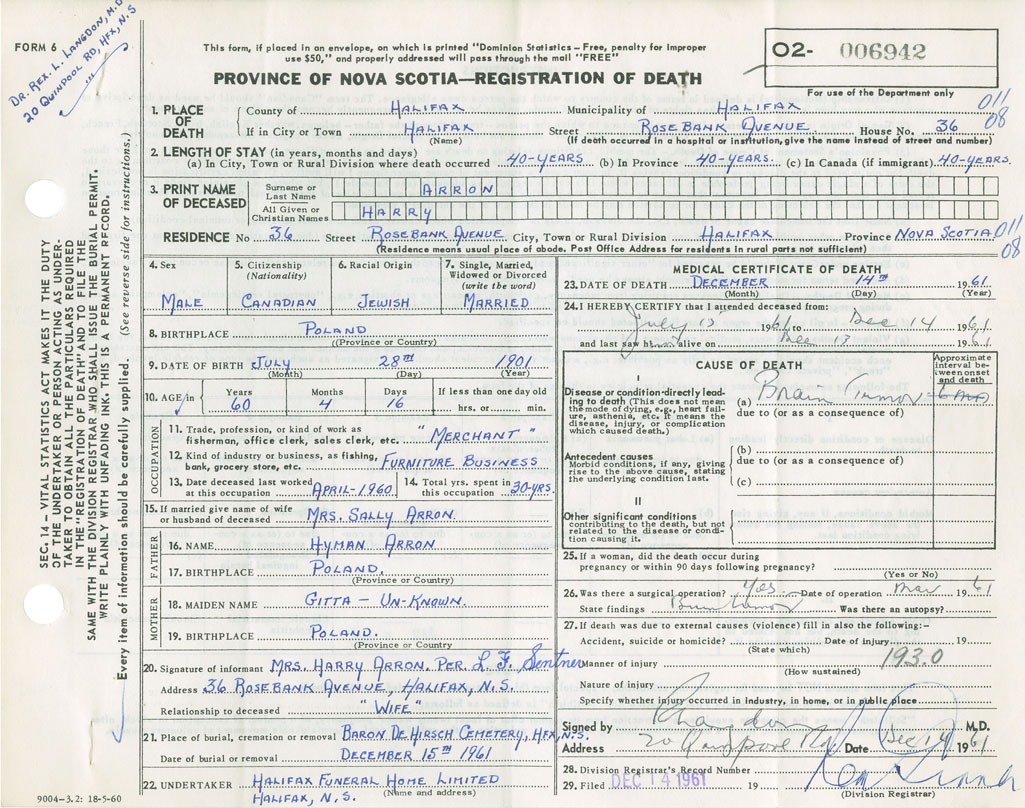 FORM 6
DR. REX. L. LANGDON, M.D.
20 QUINPOOL RD, HFX, N.S
This form, if placed in an envelope, on which is printed "Dominion Statistics—Free, penalty for improper
use $50," and properly addressed will pass through the mail "FREE"
PROVINCE OF NOVA SCOTIA—REGISTRATION OF DEATH
O2- 006942
For use of the Department only
011
08
1. PLACE OF DEATH
County of HALIFAX Municipality of HALIFAX
If in City or Town HALIFAX Street ROSEBANK AVENUE House No. 36
(Name) (If death occurred in a hospital or institution, give name instead of street and number)
2. LENGTH OF STAY (in years, months and days)
(a) In City, Town or Rural Division where death occurred 40-YEARS (b) In Province 40-YEARS. (c) In Canada (if immigrant) 40-YEARS.
3. PRINT NAME OF DECEASED
Surname or Last Name ARRON
All Given or Christian Names HARRY
RESIDENCE No 36 Street ROSEBANK AVENUE City, Town or Rural Division HALIFAX Province NOVA SCOTIA
(Residence means usual place of abode. Post Office Address for residents in rural parts not sufficient)
011
08
4. Sex
MALE
5. Citizenship (Nationality)
CANADIAN
6. Racial Origin
JEWISH
7. Single, Married, Widowed or Divorced (write the word)
MARRIED
8. BIRTHPLACE POLAND
(Province or Country)
9. DATE OF BIRTH JULY 28TH 1901
(Month) (Day) (Year)
10. AGE in Years Months Days If less than one day old
60 4 16 hrs. or min.
OCCUPATION
11. Trade, profession, or kind of work as
fisherman, office clerk, sales clerk, etc. "MERCHANT"
12. Kind of industry or business, as fishing,
bank, grocery store, etc. FURNITURE BUSINESS
13. Date deceased last worked at this occupation APRIL-1960
14. Total yrs. spent in this occupation 30-YRS.
15. If married give name of wife
or husband of deceased MRS. SALLY ARRON.
FATHER
16. NAME HYMAN ARRON
17. BIRTHPLACE POLAND.
(Province or Country)
MOTHER
18. MAIDEN NAME GITTA - UN-KNOWN.
19. BIRTHPLACE POLAND.
(Province or Country
20. Signature of informant MRS. HARRY ARRON. PER L. F. Sentner
Address 36 ROSEBANK AVENUE, HALIFAX, N.S.
Relationship to deceased "WIFE"
21. Place of burial, cremation or removal BARON DE HIRSCH CEMETERY, HFX, N.S.
Date of burial or removal DECEMBER 15TH 1961
22. UNDERTAKER HALIFAX FUNERAL HOME LIMITED
(Name and address)
HALIFAX, N.S.
9004-3.2: 18-5-60
MEDICAL CERTIFICATE OF DEATH
23. DATE OF DEATH DECEMBER 14TH 1961
(Month) (Day) (Year)
24. I HEREBY CERTIFY that I attended deceased from:
July 15 1961 to Dec 14 1961
and last saw him alive on Dec 13 1961
CAUSE OF DEATH
Approximate interval between onset and death
I
Disease or condition directly leading to death (This does not mean the mode of dying, e.g., heart failure, asthenia, etc. It means the disease, injury, or complication which caused death.)
(a) Brain Tumor
due to (or as a consequence of)
Antecedent causes
Morbid conditions, if any, giving rise to the above cause, stating the underlying condition last.
(b)
due to (or as a consequence of)
(c)
II
Other significant conditions
contributing to the death, but not related to the disease or condition causing it.
25. If a woman, did the death occur during
pregnancy or within 90 days following pregnancy?
(Yes or No)
26. Was there a surgical operation? Yes Date of operation Mar 1961
State findings Brain tumor Was there an autopsy?
27. If death was due to external causes (violence) fill in also the following:—
Accident, suicide or homicide? Date of injury 19
(State which)
193.0
Manner of injury
(How sustained)
Nature of injury
Specify whether injury occurred in industry, in home, or in public place
Signed by M.D.
Address 20 Quinpool Rd Date Dec 14 1961
28. Division Registrar's Record Number
29. Filed DEC 14 1961 19
(Division Registrar)
SEC. 14—VITAL STATISTICS ACT MAKES IT THE DUTY
OF THE UNDERTAKER OR PERSON ACTING AS UNDER-
TAKER TO OBTAIN ALL THE PARTICULARS REQUIRED
IN THE "REGISTRATION OF DEATH" AND TO FILE THE
SAME WITH THE DIVISION REGISTRAR WHO SHALL ISSUE THE BURIAL PERMIT.
WRITE PLAINLY WITH UNFADING INK. THIS IS A PERMANENT RECORD.
Every item of information should be carefully supplied. (See reverse side for instructions.)